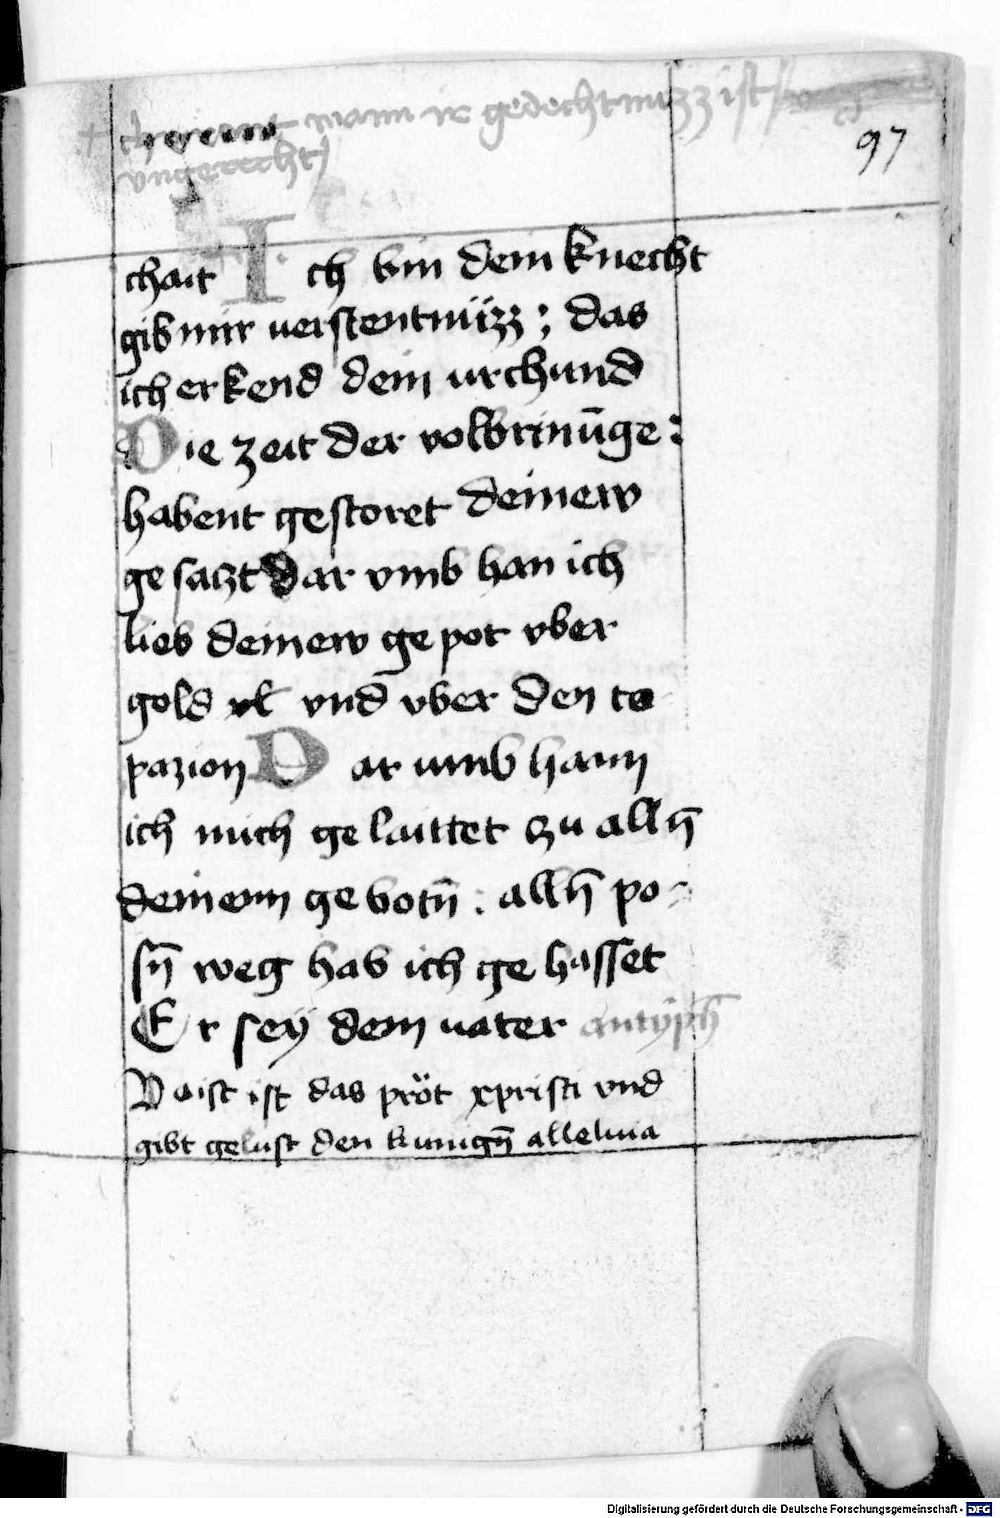 wann ir gedechtnuzz ist
97
vngerecht
chait Ich bin dein knecht
gib mir uerstentnüzz ; das
ich erkend dein urchund
Die zeit der volbrinūge :
habent gestoret deinew
gesatzt dar vmb han ich
lieb deinew gepot vber
gold vnd vber den to
pazion Dar umb hann
ich mich gelaittet zu allñ
deinenn gebotñ : allñ po-
sñ weg hab ich gehasset
Er sey dem uater antyph
Vaist ist das pröt xpristi vnd
gibt gelust den kunigñ alleluia
Digitalisierung gefördert durch die Deutsche Forschungsgemeinschaft - DFG